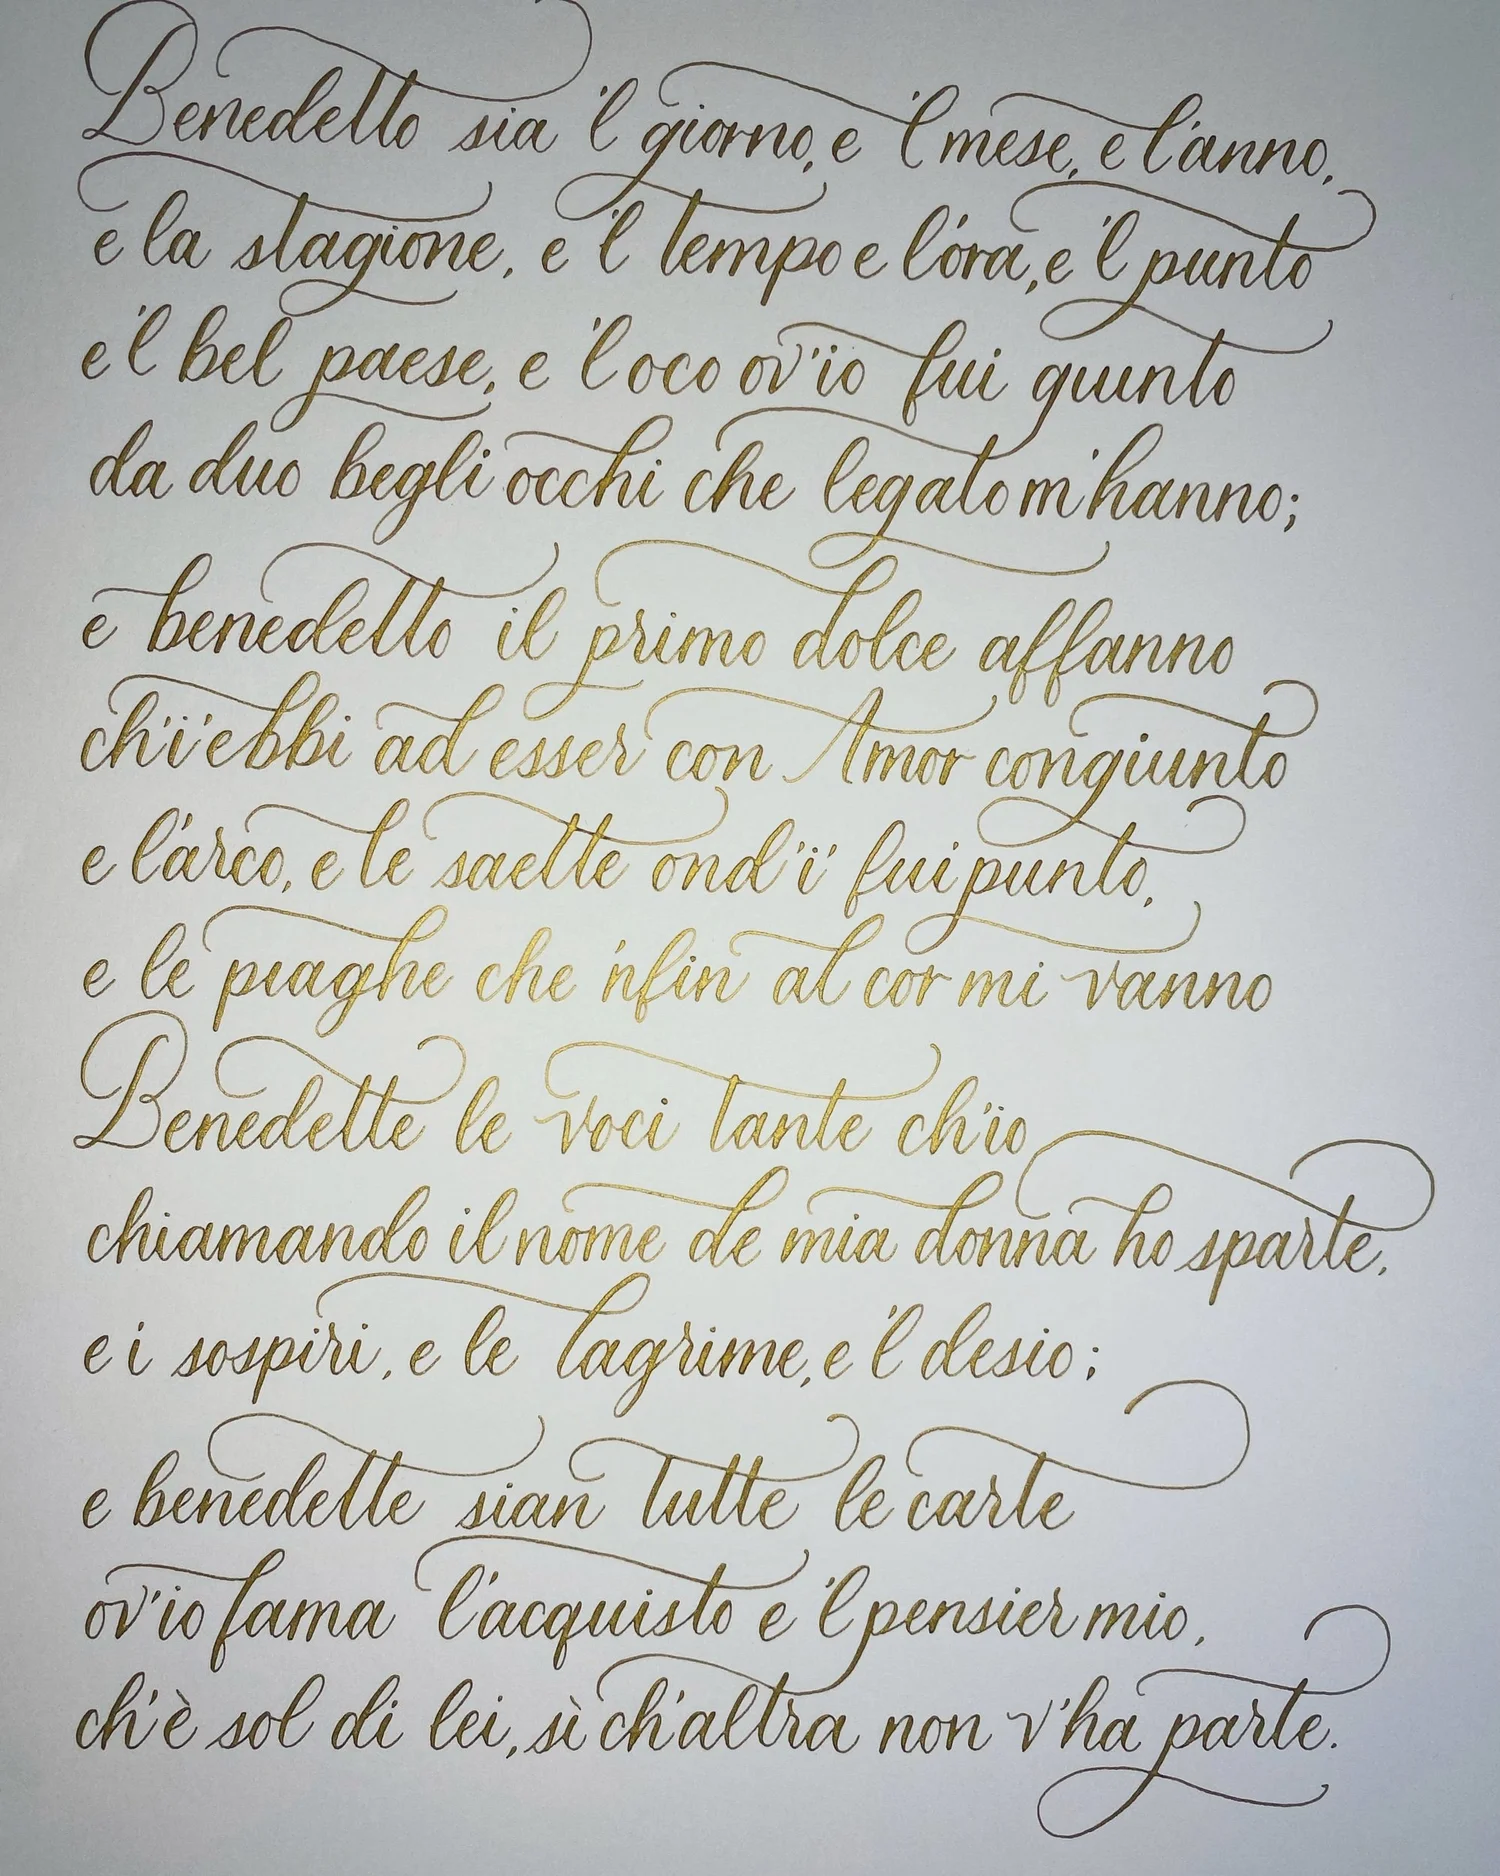 Benedetto sia 'l giorno, e 'l mese, e l'anno,
e la stagione, e 'l tempo e l'ora, e 'l punto
e 'l bel paese, e 'l oco ov'io fui giunto
da duo begli occhi che legato m'hanno;
e benedetto il primo dolce affanno
ch'i' ebbi ad esser con Amor congiunto
e l'arco, e le saette ond'i' fui punto,
e le piaghe che 'nfin al cor mi vanno
Benedette le voci tante ch'io
chiamando il nome de mia donna ho sparte,
e i sospiri, e le lagrime, e 'l desio;
e benedette sian tutte le carte
ov'io fama l'acquisto e 'l pensier mio,
ch'è sol di lei, sì ch'altra non v'ha parte.